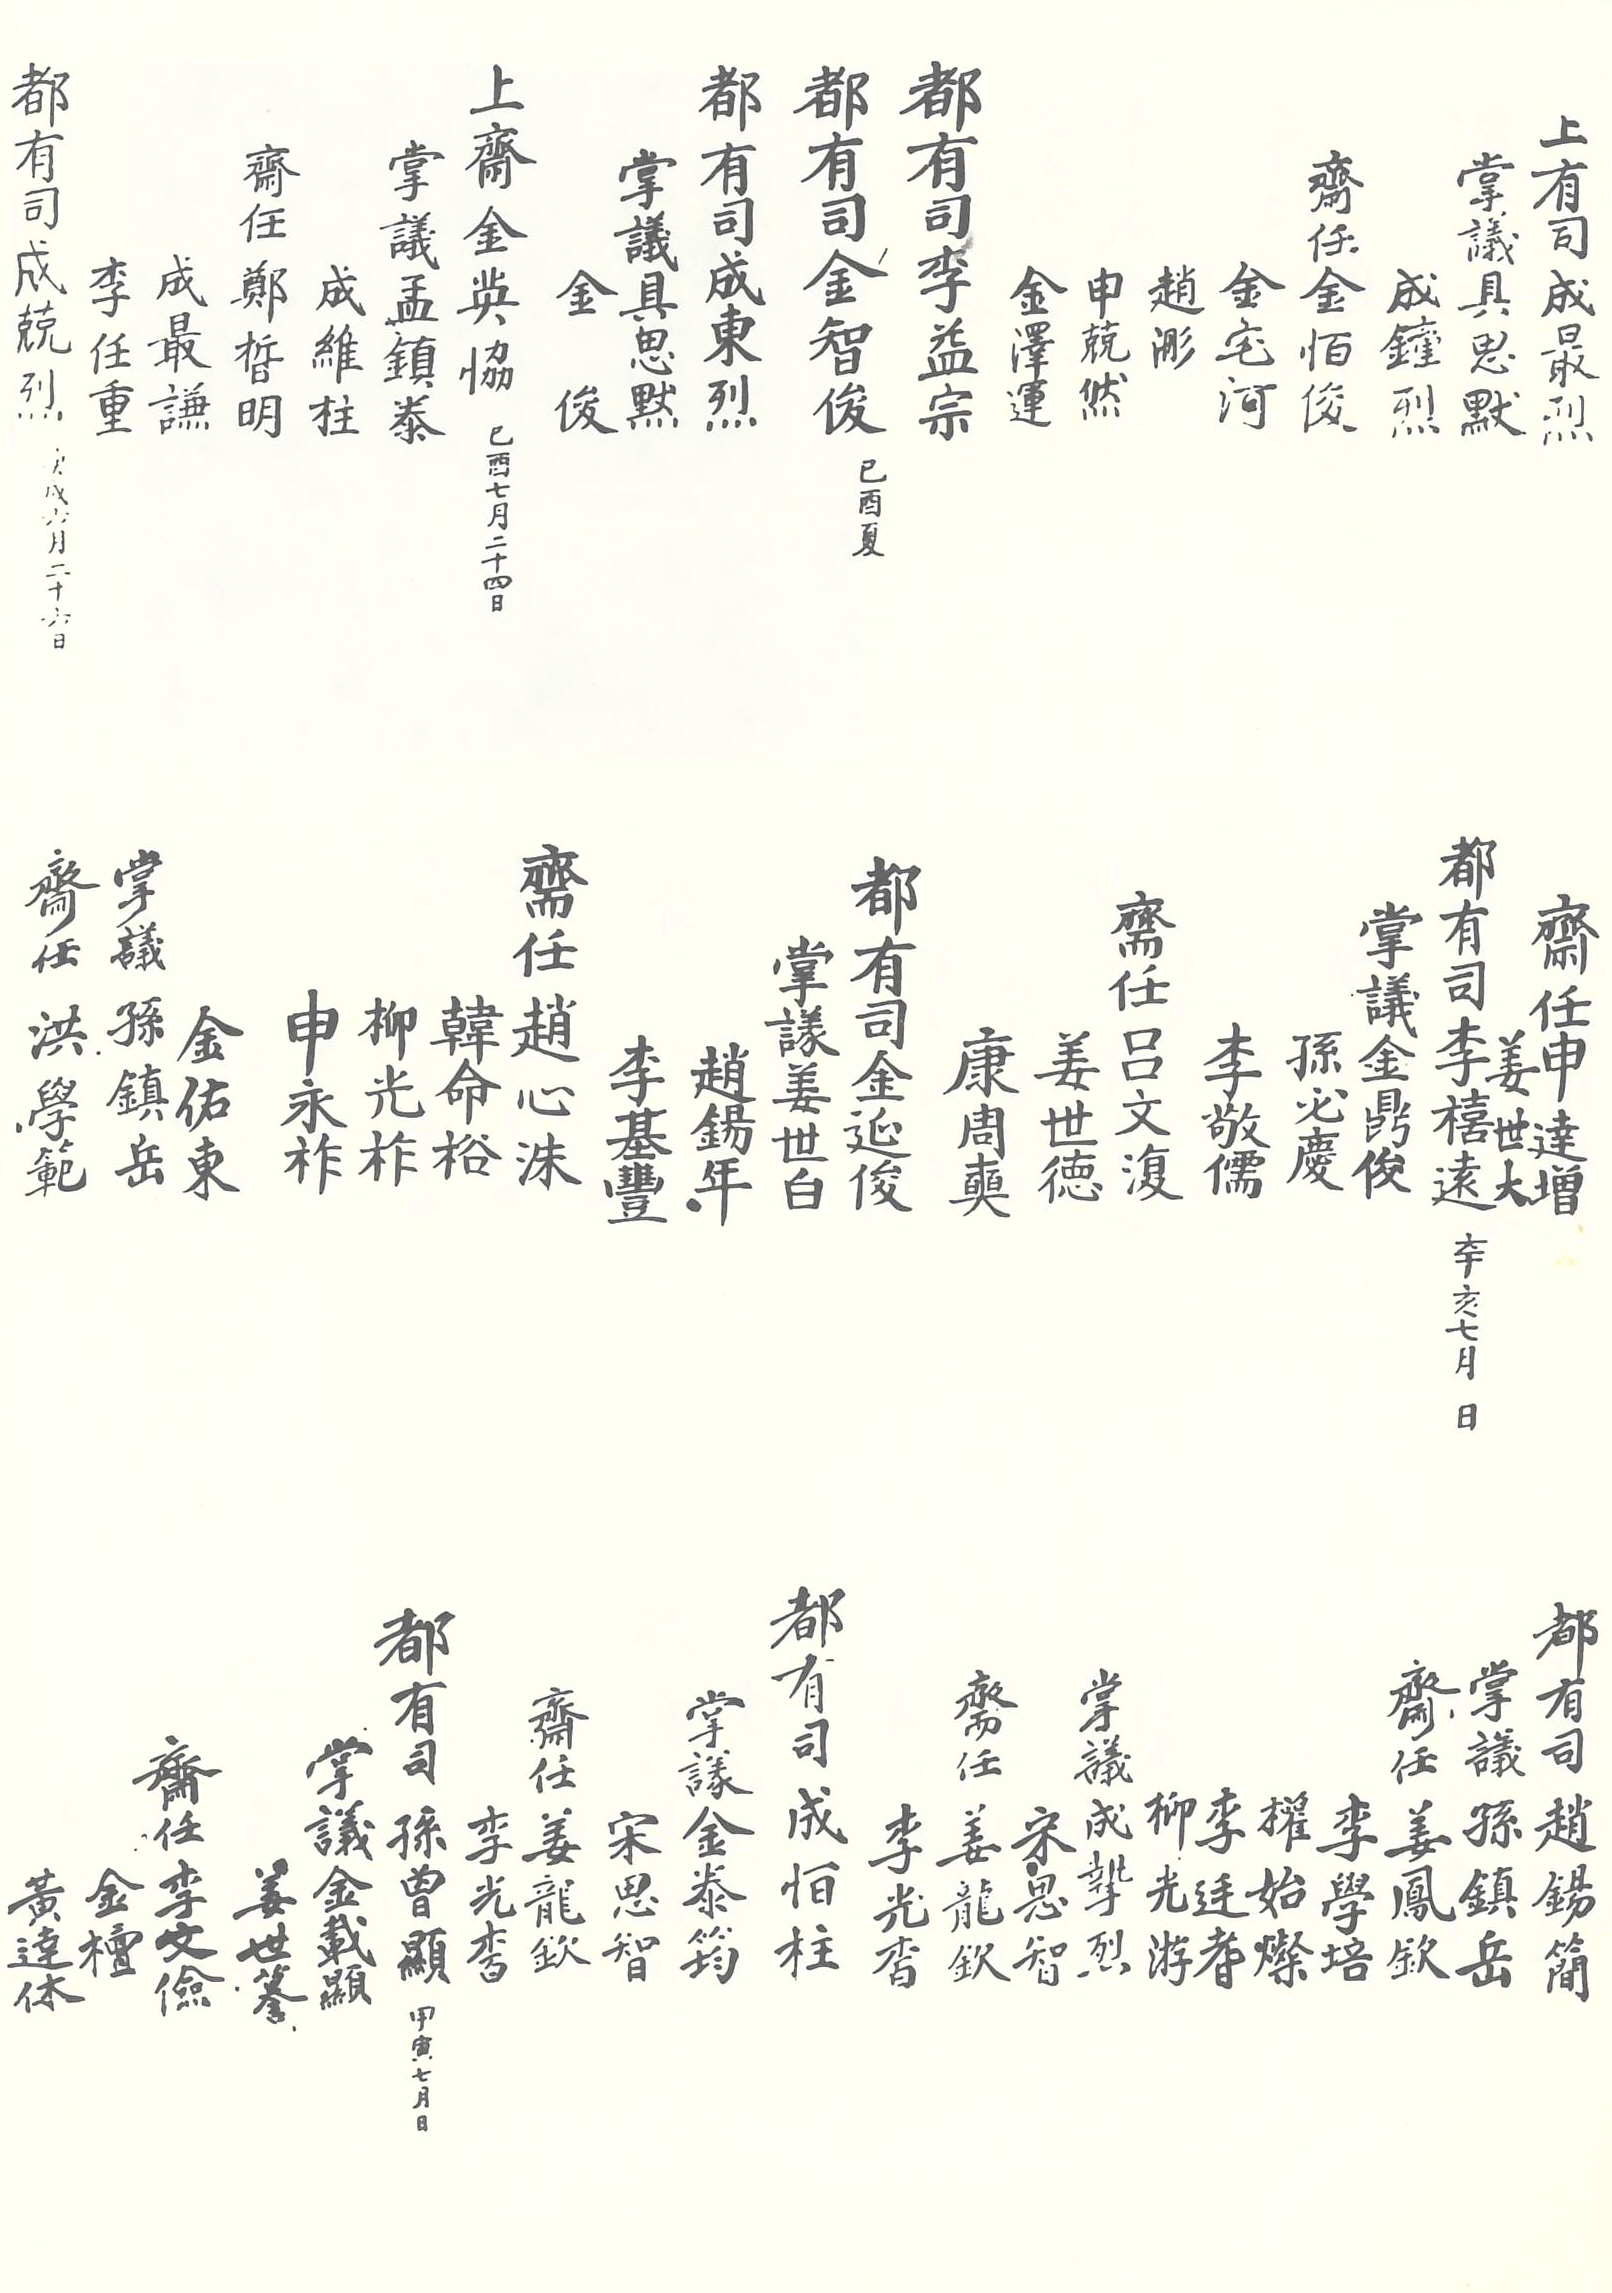 上有司成最烈
掌議具思默
成鐘烈
齋任金恒俊
金宅河
趙浵
申兢然
金澤運
都有司李益宗
都有司金智俊 己酉夏
都有司成東烈
掌議具思默
金 俊
上齋金英協 己酉七月二十四日
掌議孟鎭泰
成維柱
齋任鄭晳明
成最謙
李任重
都有司成兢烈 戌六月二十六日
齋任申達增
姜世大
都有司李橲遠 辛亥七月 日
掌議金鼎俊
孫必慶
李敬儒
齋任呂文復
姜世德
康周奭
都有司金延俊
掌議姜世白
趙錫年
李基豐
齋任趙心洙
韓命裕
柳光柞
申永祚
金佑東
掌議孫鎭岳
齋任洪學範
都有司趙錫簡
掌議孫鎭岳
齋任姜鳳欽
李學培
權始燦
李廷耉
柳光游
掌議成摯烈
宋思智
齋任姜龍欽
李光
都有司成恒柱
掌議金泰筠
宋思智
齋任姜龍欽
李光
都有司孫曾顯 甲寅七月日
掌議金載顯
姜世
齋任李文儉
金檀
黃達休